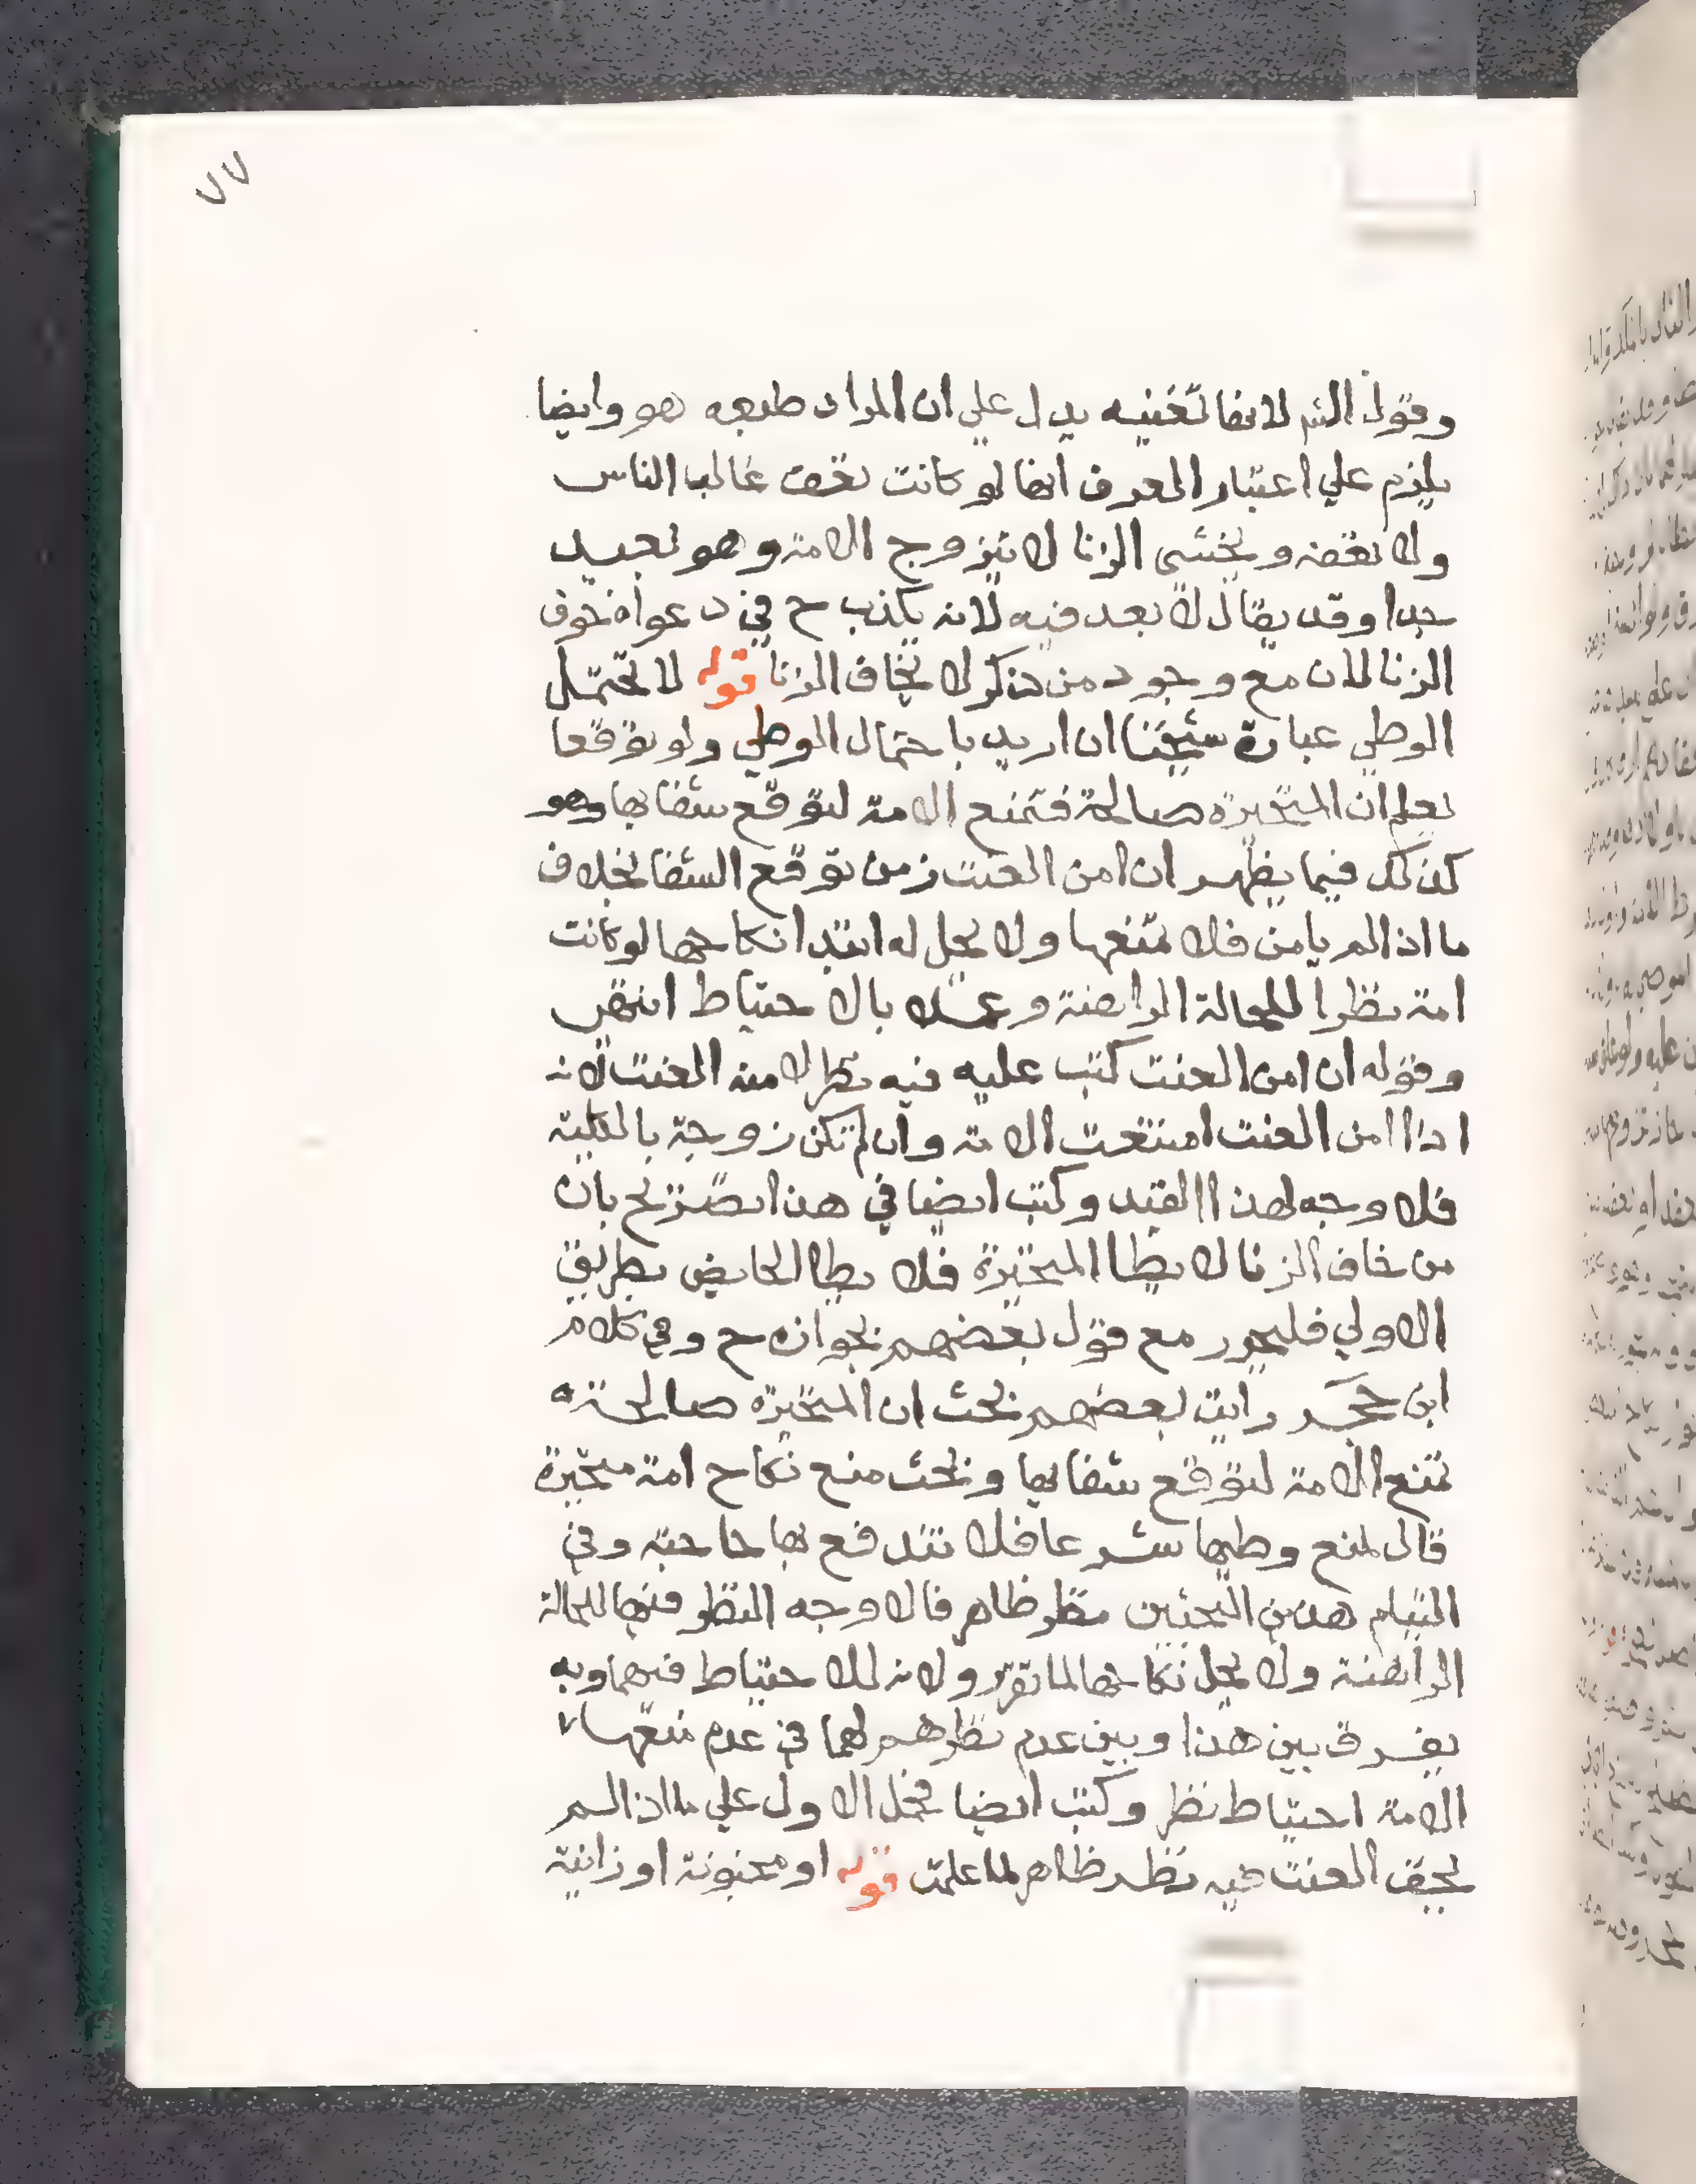 ٧٧
وقول الشم لانها تغنيه يدل علي ان المراد طبعه هو وايضا
يلزم علي اعتبار العرف انها لو كانت تعف غالب الناس
ولا تعفه ويخشي الزنا لا يتزوج الامة وهو بعيد
جدا وقد يقال لا بعد فيه لانه يكذب ح في دعواه خوف
الزنا لان مع وجود من ذكر لا يخاف الزنا قوله لا تحتمل
الوطي عبارة شيخنا ان اريد باحتمال الوطي ولو توقعا
يعلم ان المتحيرة صالحة فتمنع الامة لتوقع شفائها وهو
كذلك فيما يظهر ان امن العنت زمن توقع الشفا بخلاف
ما اذا لم يامن فلا تمنعها ولا يحل له ابتدا نكاحها لو كانت
امة نظرا للحالة الراهنة وعملا بالاحتياط انتهي
وقوله ان امن العنت كتب عليه فيه نظر لامنه العنت لانه
اذا امن العنت امتنعت الامة وان لم تكن زوجة بالكلية
فلا وجه لهذا القيد وكتب ايضا في هذا تصريح بان
من خاف الزنا لا يطا المتحيرة فلا يطا الحايض بطريق
الاولي فليحرر مع قول بعضهم بجوازه ح وفي كلام
ابن حجر رايت بعضهم بحث ان المتحيرة صالحة
تمنع الامة لتوقع شفائها وبحث منع نكاح امة متحيرة
قال لمنع وطيها شرعا فلا تندفع بها حاجته وفي
التيام هذين البحثين نظر ظاهر فالاوجه النظر فيها للحالة
الراهنة ولا يحل نكاحها لما تقرر ولانه للاحتياط فيهما وبه
يفرق بين هذا وبين عدم نظرهم لهما في عدم منعها
الامة احتياط نظر وكتب ايضا فحمل الاول علي ما اذا لم
يخف العنت فيه نظر ظاهر لما علمت قوله او مجنونة او زانية